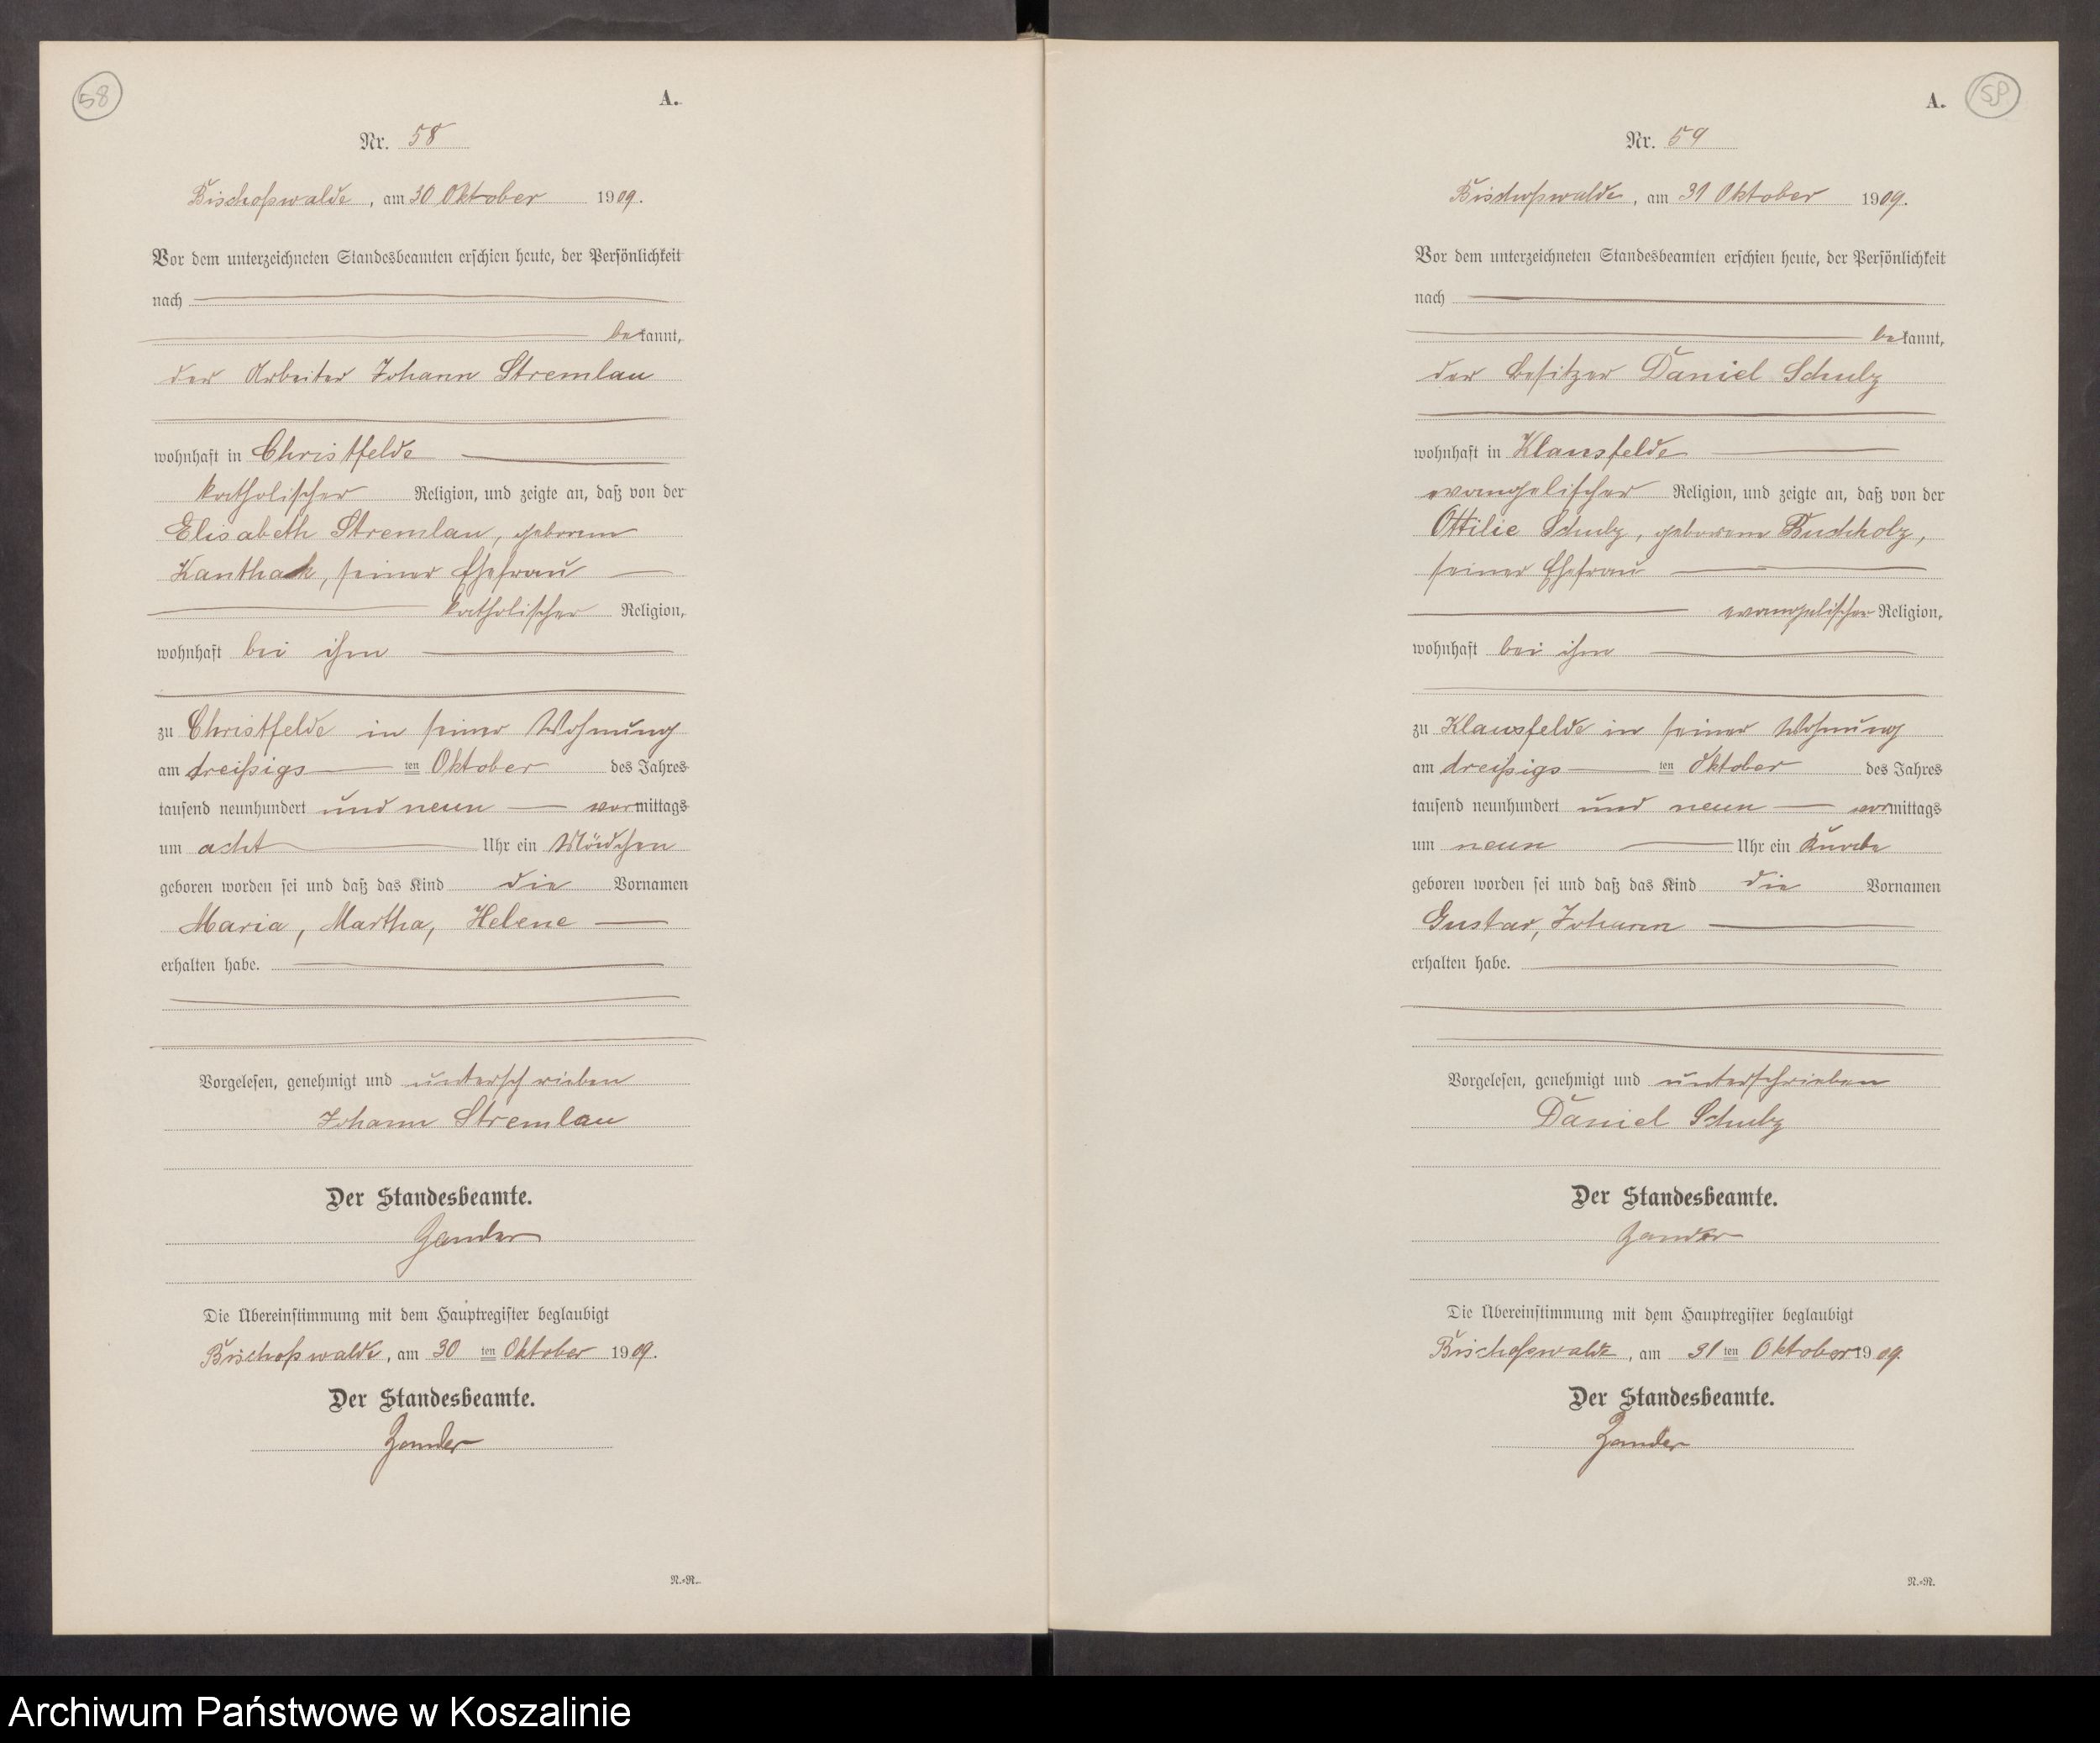 58
A.
Nr. 58
Bischofswalde, am 30 Oktober 1909.
Vor dem unterzeichneten Standesbeamten erschien heute, der Persönlichkeit
nach
bekannt,
der Arbeiter Johann Stremlau
wohnhaft in Christfelde
katholischer Religion, und zeigte an, daß von der
Elisabeth Stremlau, geborene
Kanthak, seiner Ehefrau
katholischer Religion,
wohnhaft bei ihm
zu Christfelde in seiner Wohnung
am dreißigs ten Oktober des Jahres
tausend neunhundert und neun vormittags
um acht Uhr ein Mädchen
geboren worden sei und daß das Kind die Vornamen
Maria, Martha, Helene
erhalten habe.
Vorgelesen, genehmigt und unterschrieben
Johann Stremlau
Der Standesbeamte.
Zander
Die Übereinstimmung mit dem Hauptregister beglaubigt
Bischofswalde, am 30 ten Oktober 1909.
Der Standesbeamte.
Zander
N.=R.
A. 59
Nr. 59
Bischofswalde, am 31 Oktober 1909.
Vor dem unterzeichneten Standesbeamten erschien heute, der Persönlichkeit
nach
bekannt,
der Besitzer Daniel Schulz
wohnhaft in Klausfelde
evangelischer Religion, und zeigte an, daß von der
Ottilie Schulz, geborene Buchholz,
seiner Ehefrau
evangelischer Religion,
wohnhaft bei ihm
zu Klausfelde in seiner Wohnung
am dreißigs ten Oktober des Jahres
tausend neunhundert und neun vormittags
um neun Uhr ein Knabe
geboren worden sei und daß das Kind die Vornamen
Gustav, Johann
erhalten habe.
Vorgelesen, genehmigt und unterschrieben
Daniel Schulz
Der Standesbeamte.
Zander
Die Übereinstimmung mit dem Hauptregister beglaubigt
Bischofswalde, am 31 ten Oktober 1909.
Der Standesbeamte.
Zander
N.=R.
Archiwum Państwowe w Koszalinie